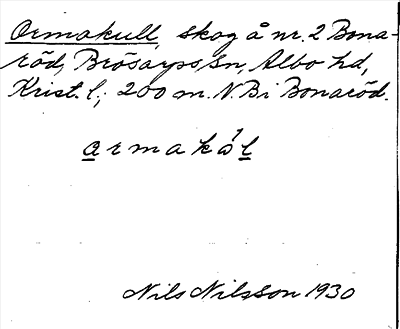 Ormakull, skog å nr. 2 Bona-
röd, Brösarps sn, Albo hd,
Krist. l; 200 m. N. Bi Bonaröd.
armakål
Nils Nilsson 1930